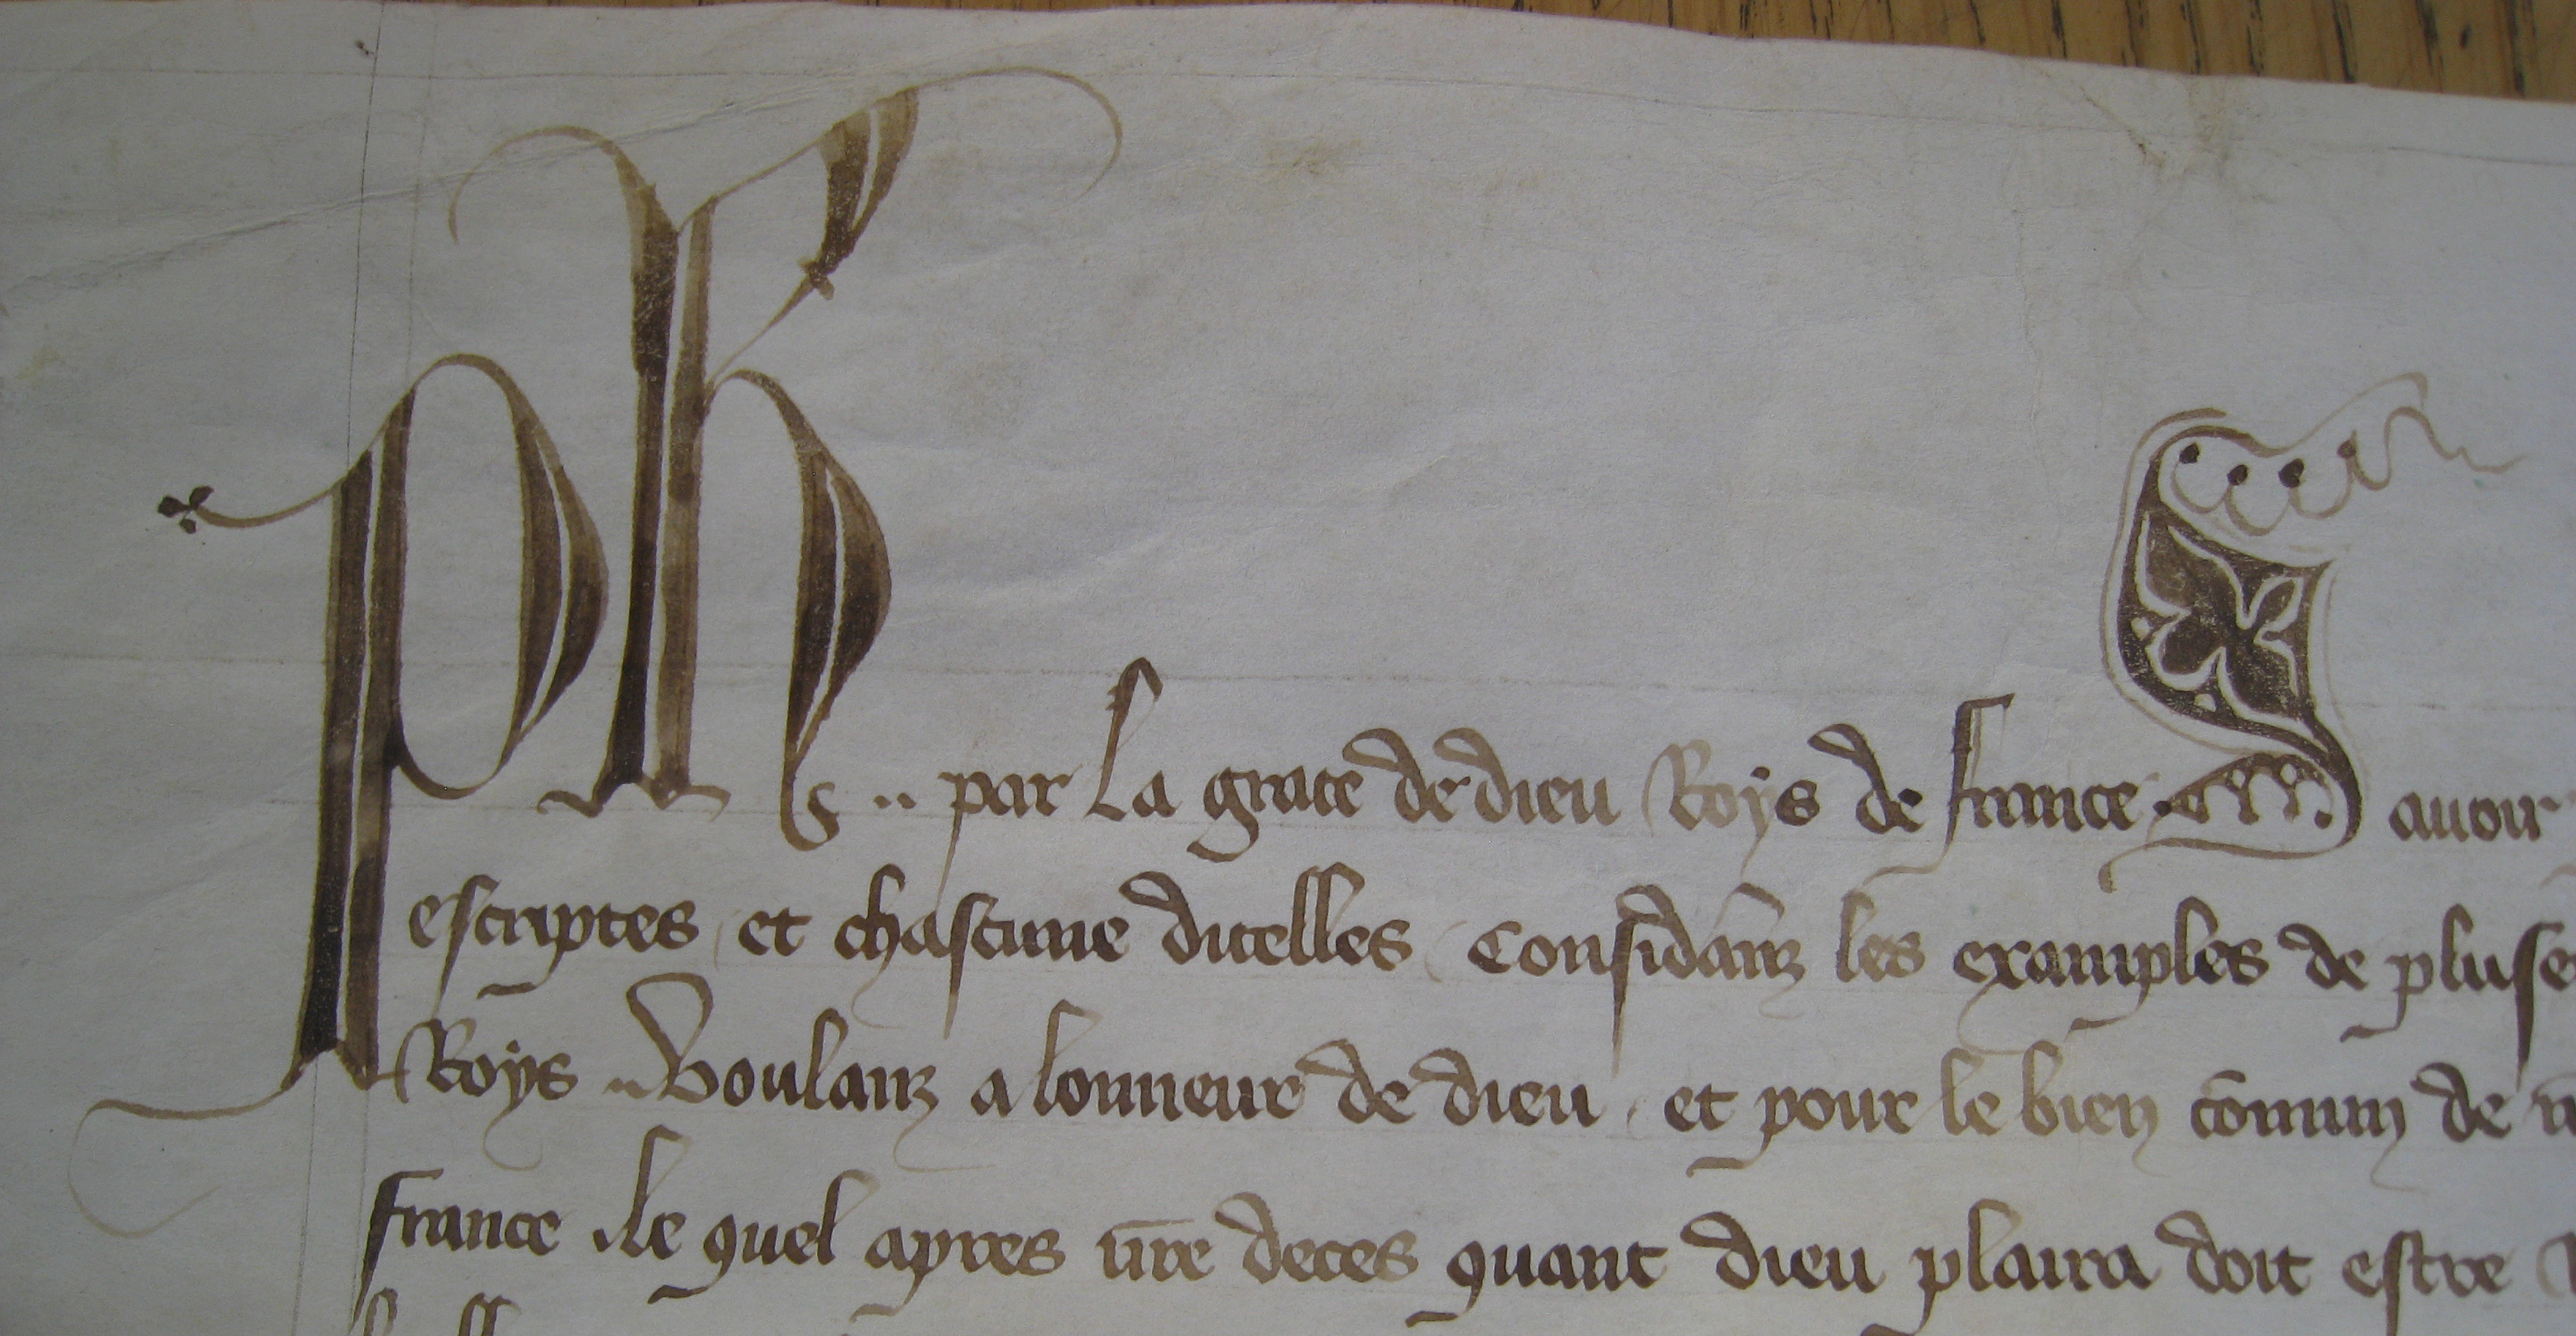 Phs .. par la grace de dieu Roys de france . Savoir
escriptes et chascune dicelles . Considãnz les examples de pluse
Roys .. Voulanz a lonneur de dieu . et pour le bien cõmun de
france . le quel apres nr̃e deces quant dieu plaira doit estre